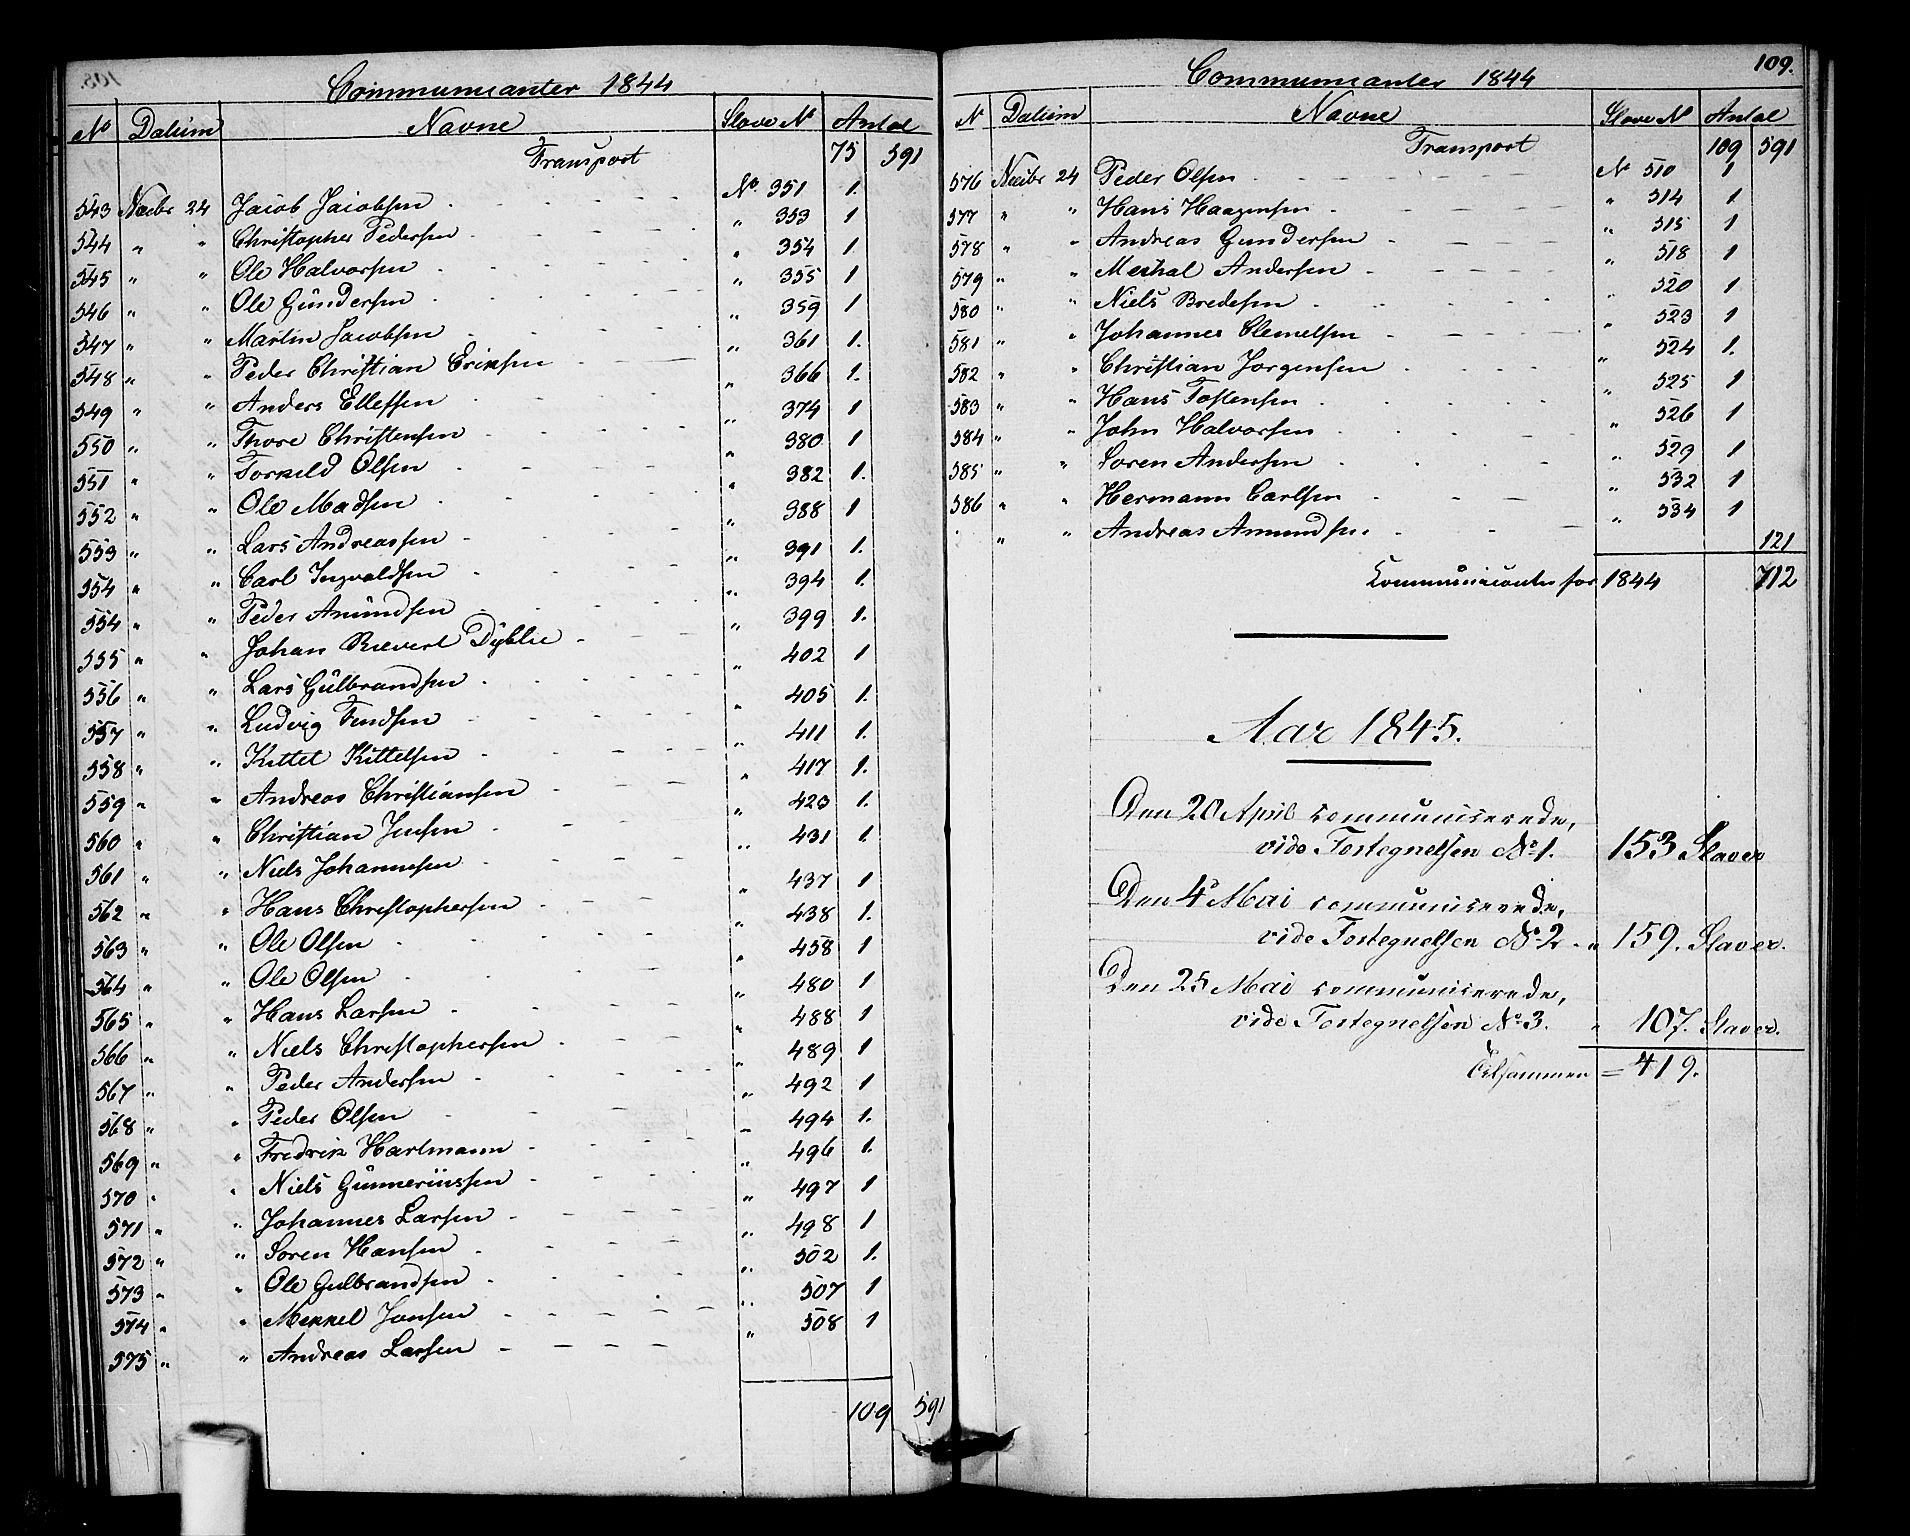 Communicanter 1844
No Datum Navne Slave No Antal
Transport 75 591
543 Novbr 24 Jacob Jacobsen No 351 1.
544 " " Christopher Pedersen " 353 1
545 " " Ole Halvorsen " 354 1
546 " " Ole Gundersen " 355 1
547 " " Martin Jacobsen " 359 1
548 " " Peder Christian Eriksen " 361 1.
549 " " Anders Ellefsen " 366 1.
550 " " Thore Christensen " 374 1
551 " " Torkild Olsen " 380 1
552 " " Ole Madsen " 382 1.
553 " " Lars Andreassen " 388 1
554 " " Carl Ingvaldsen " 391 1.
554 " " Peder Amundsen " 394 1.
555 " " Johan Dyblie " 399 1.
556 " " Lars Gulbrandsen " 402 1
557 " " Ludvig " 405 1.
558 " " Kittel Kittelsen " 411 1.
559 " " Andreas Christiansen " 417 1.
560 " " Christian Jensen " 423 1.
561 " " Niels Johannesen " 431 1.
562 " " Hans Christophersen " 437 1
563 " " Ole Olsen " 438 1.
564 " " Ole Olsen " 458 1
565 " " Hans Larsen " 480 1
566 " " Niels Christophersen " 488 1
567 " " Peder Andersen " 489 1
568 " " Peder Olsen " 492 1
569 " " Fredrik Hartmann " 494 1.
570 " " Niels Gunneriussen " 496 1.
571 " " Johannes Larsen " 497 1
572 " " Soren Hansen " 498 1
573 " " Ole Gulbrandsen " 502 1.
574 " " Mekkel Jonsen " 507 1
575 " " Andreas Larsen " 508 1
109 591
109.
Communicanter 1844
N Datum Navne Slave N Antal
Transport 109 591
576 Novbr 24 Peder Olsen N 510 1
577 " " Hans Haagensen " 514 1
578 " " Andreas Gundersen " 515 1
579 " " Michal Andersen " 518 1
580 " " Niels Bredesen " 520 1
581 " " Johannes Clemetsen " 523 1
582 " " Christian Jorgensen " 524 1.
583 " " Hans Tostensen " 525 1
584 " " John Halvorsen " 526 1
585 " " Soren Andersen " 529 1
586 " " Hermann Carlsen " 532 1
" " Andreas Amundsen " 534 1
121
Communicanter for 1844 712
Aar 1845.
Den 20 April communiserede,
vide Fortegnelsen No 1. 153 Slaver
Den 4 Mai communiserede,
vide Fortegnelsen No 2 - " 159. Slaver.
Den 25 Mai communiserede,
vide Fortegnelsen No 3. " 107. Slaver.
Tilsammen = 419.